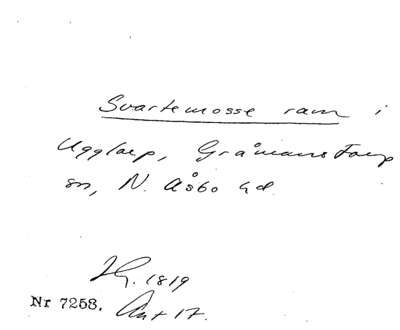 Svartemosse ram i
Ugglarp, Gråmanstorp
sn, N. Åsbo hd.
1819
Nr 7258. Akt 17.